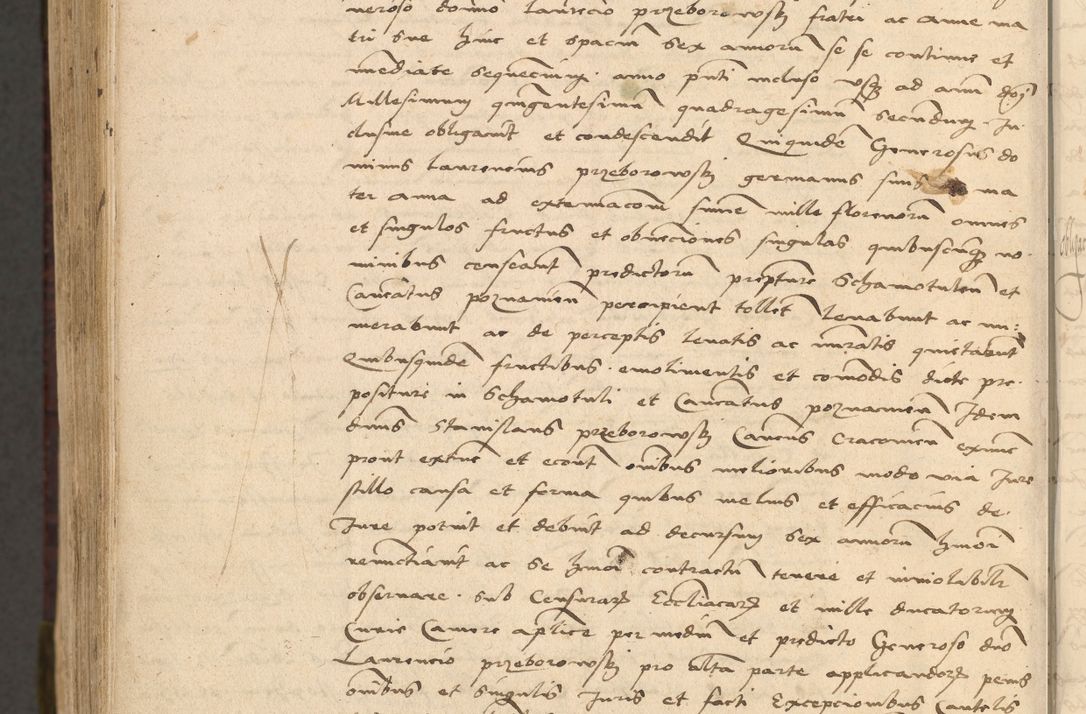 neroso domino Laurecio przeborowskij fratri ac Anne ma
tri sue hinc et spacium sex annorum se se continue et
mediate sequencium anno pnti incluso vsq ad annum dnj
Millesimum quingentesimum quadragesimum secundum In
clusiue obligauit et condescendit Quiquidem Generosus do
minus Laurencius przeborowskij germanus suus ma
ter Anna ad extenuacom summe mille florenorum omnes
et singulos fructus et obuenciones singulas quibuscunq no
minibus censeant predictorum prepture Schamotulen et
Canonicatus poznanien percipient tollent leuabunt ac nu
merabunt ac de perceptis leuatis ac numeratis quietabunt
Quibusquidem fructibus emolimentis et comodis dicte pre
positure in Schamotuli et Canonicatus poznanien Idem
dnus Stanislaus przeborowskij Canonicus Cracouien exnunc
prout extunc et econtra omnibus melioribus modo via Jure
stillo causa et forma quibus melius et efficacius de
Jure potuit et debuit ad decursum sex annorum hmoi
renunctiauit ac se hmoi contractum tenere et inuiolabiliter
obseruare sub Censurarum Eccliacarum et mille ducatorum
Curie Camere aplice per medium et predicto Generoso dno
Laurencio przeborowskij pro altera parte applicandorum penis
omnibus et singulis Juris et facti Excepcionibus Cautelis